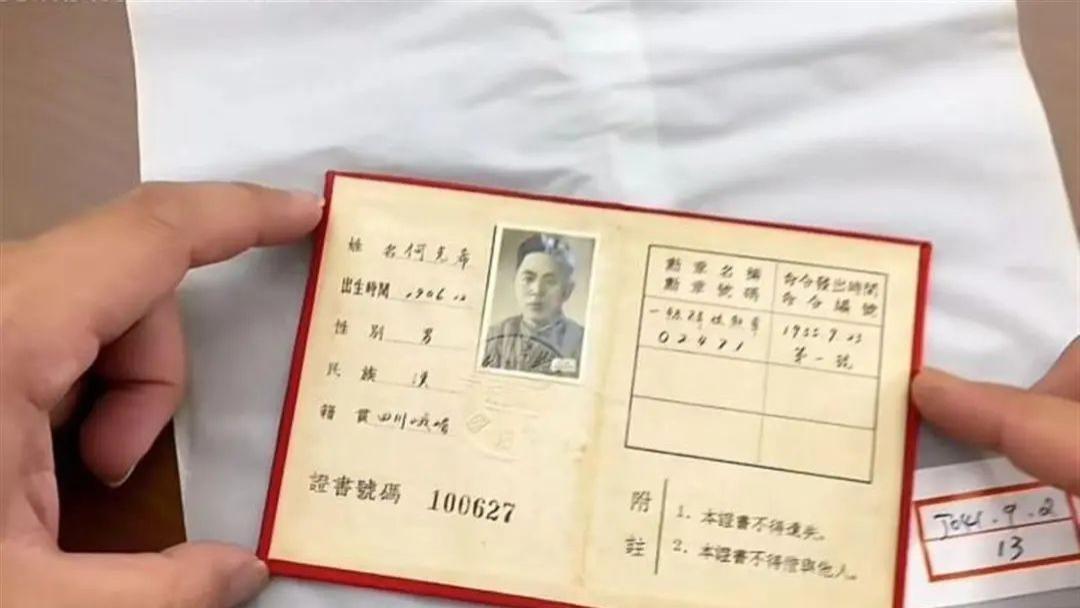 姓名何克希
出生時間 1906.12
性別 男
民族 漢
籍貫四川峨嵋
證書號碼 100627
勳章名稱 命令發出時間
勳章號碼 命令編號
一級解放勳章 1955.9.23
02421 第一號
附註
1. 本證書不得遺失。
2. 本證書不得借與他人。
J041.9.2
13